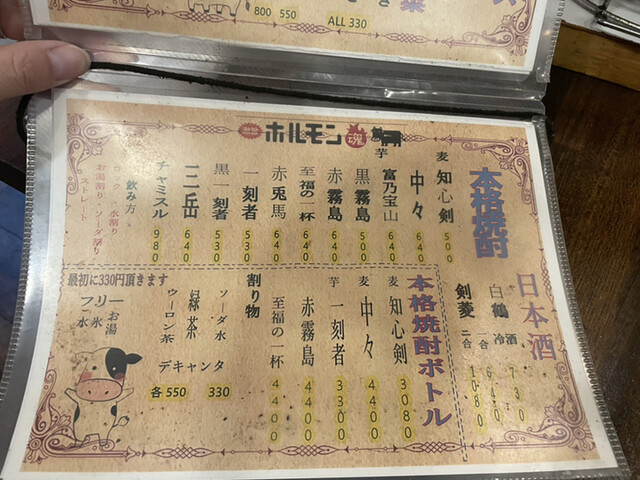 800 550
ALL 330
ホルモン魂
本格焼酎
麦 知心剣 500
中々 640
芋 富乃宝山 640
黒霧島 500
赤霧島 640
至福の一杯 640
赤兎馬 640
一刻者 530
黒一刻者 530
三岳 640
チャミスル 980
飲み方
ロック・水割り
お湯割り・ソーダ割り
ストレート
日本酒
白鶴 冷酒 730
一合 640
剣菱 二合 1080
本格焼酎ボトル
麦 知心剣 3080
麦 中々 4400
芋 一刻者 3300
赤霧島 4400
至福の一杯 4400
割り物
ソーダ水 330
緑茶
ウーロン茶
デキャンタ
各550
最初に330円頂きます
フリー
お湯
氷
水